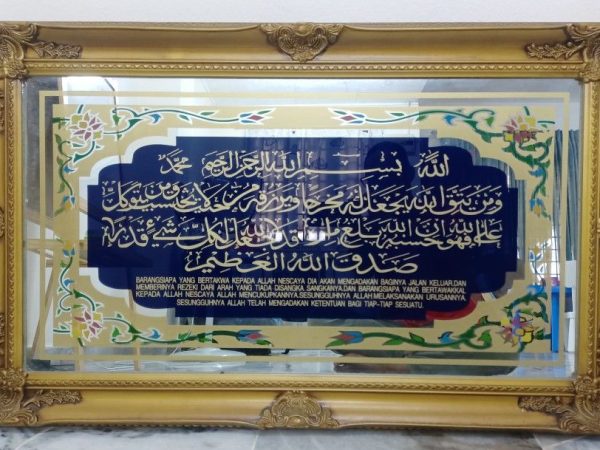 الله بسم الله الرحمن الرحيم محمد
ومن يتق الله يجعل له مخرجا ويرزقه من حيث لا يحتسب ومن يتوكل
على الله فهو حسبه إن الله بالغ أمره قد جعل الله لكل شيء قدرا
صدق الله العظيم
BARANGSIAPA YANG BERTAKWA KEPADA ALLAH NESCAYA DIA AKAN MENGADAKAN BAGINYA JALAN KELUAR,DAN
MEMBERINYA REZEKI DARI ARAH YANG TIADA DISANGKA.SANGKANYA.DAN BARANGSIAPA YANG BERTAWAKKAL
KEPADA ALLAH NESCAYA ALLAH MENCUKUPKANNYA.SESUNGGUHNYA ALLAH MELAKSANAKAN URUSANNYA.
SESUNGGUHNYA ALLAH TELAH MENGADAKAN KETENTUAN BAGI TIAP-TIAP SESUATU.